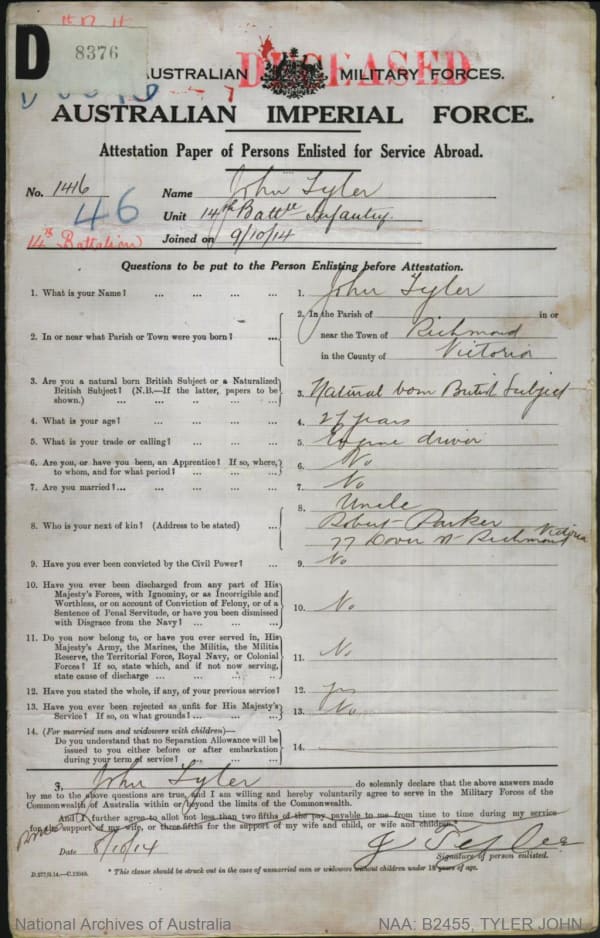 D
8376
DECEASED
AUSTRALIAN MILITARY FORCES.
AUSTRALIAN IMPERIAL FORCE.
Attestation Paper of Persons Enlisted for Service Abroad.
No. 1416 Name John Tyler
46
Unit 14th Battn Infantry
14th Battalion Joined on 9/10/14
Questions to be put to the Person Enlisting before Attestation.
1. What is your Name? ... ... ... ... 1. John Tyler
2. In the Parish of in or
2. In or near what Parish or Town were you born? ... near the Town of Richmond
in the County of Victoria
3. Are you a natural born British Subject or a Naturalized
British Subject? (N.B.—If the latter, papers to be
shown.) ... ... ... ... ... 3. Natural born British Subject
4. What is your age? ... ... ... ... 4. 27 years
5. What is your trade or calling? ... ... ... 5. Engine driver
6. Are you, or have you been, an Apprentice? If so, where,
to whom, and for what period? ... ... ... 6. No
7. Are you married?... ... ... ... ... 7. No
8. Uncle
8. Who is your next of kin? (Address to be stated) ... Robert Parker
77 Dover St Richmond Victoria
9. Have you ever been convicted by the Civil Power? ... 9. No
10. Have you ever been discharged from any part of His
Majesty's Forces, with Ignominy, or as Incorrigible and
Worthless, or on account of Conviction of Felony, or of a
Sentence of Penal Servitude, or have you been dismissed
with Disgrace from the Navy? ... ... ... 10. No
11. Do you now belong to, or have you ever served in, His
Majesty's Army, the Marines, the Militia, the Militia
Reserve, the Territorial Force, Royal Navy, or Colonial
Forces? If so, state which, and if not now serving,
state cause of discharge ... ... ... ... 11. No
12. Have you stated the whole, if any, of your previous service? 12. yes
13. Have you ever been rejected as unfit for His Majesty's
Service? If so, on what grounds?... ... ... 13. No
14. (For married men and widowers with children)—
Do you understand that no Separation Allowance will be
issued to you either before or after embarkation
during your term of service? ... ... ... 14.
I, John Tyler do solemnly declare that the above answers made
by me to the above questions are true, and I am willing and hereby voluntarily agree to serve in the Military Forces of the
Commonwealth of Australia within or beyond the limits of the Commonwealth.
And I further agree to allot not less than two fifths of the pay payable to me from time to time during my service
for the support of my wife, or three-fifths for the support of my wife and child, or wife and children.*
Date 8/10/14 J Tyler
Signature of person enlisted.
* This clause should be struck out in the case of unmarried men or widowers without children under 18 years of age.
National Archives of Australia NAA: B2455, TYLER JOHN